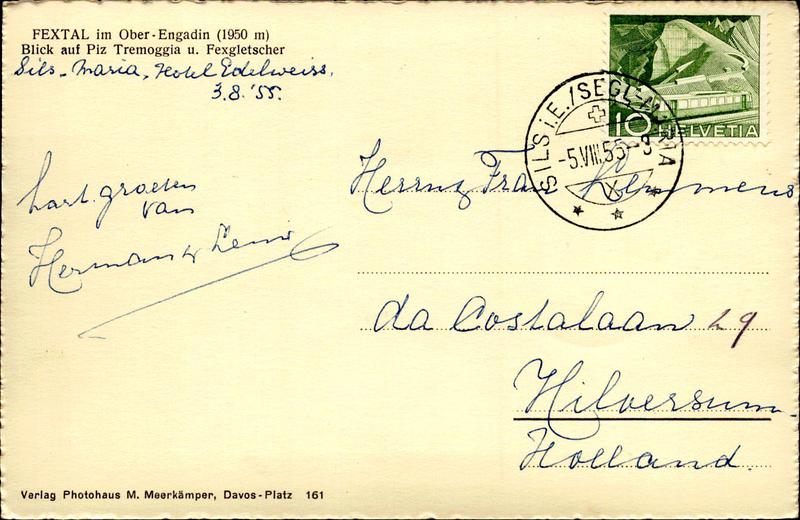 FEXTAL im Ober-Engadin (1950 m)
Blick auf Piz Tremoggia u. Fexgletscher
Sils-Maria, Hotel Edelweiss.
3.8.'55.
hart. groeten
van
Herman
10 HELVETIA
SILS i.E./SEGL-MARIA
-5.VIII.55-8
X
Fran Lemmens
da Costalaan 29
Hilversum
Holland.
Verlag Photohaus M. Meerkämper, Davos-Platz 161